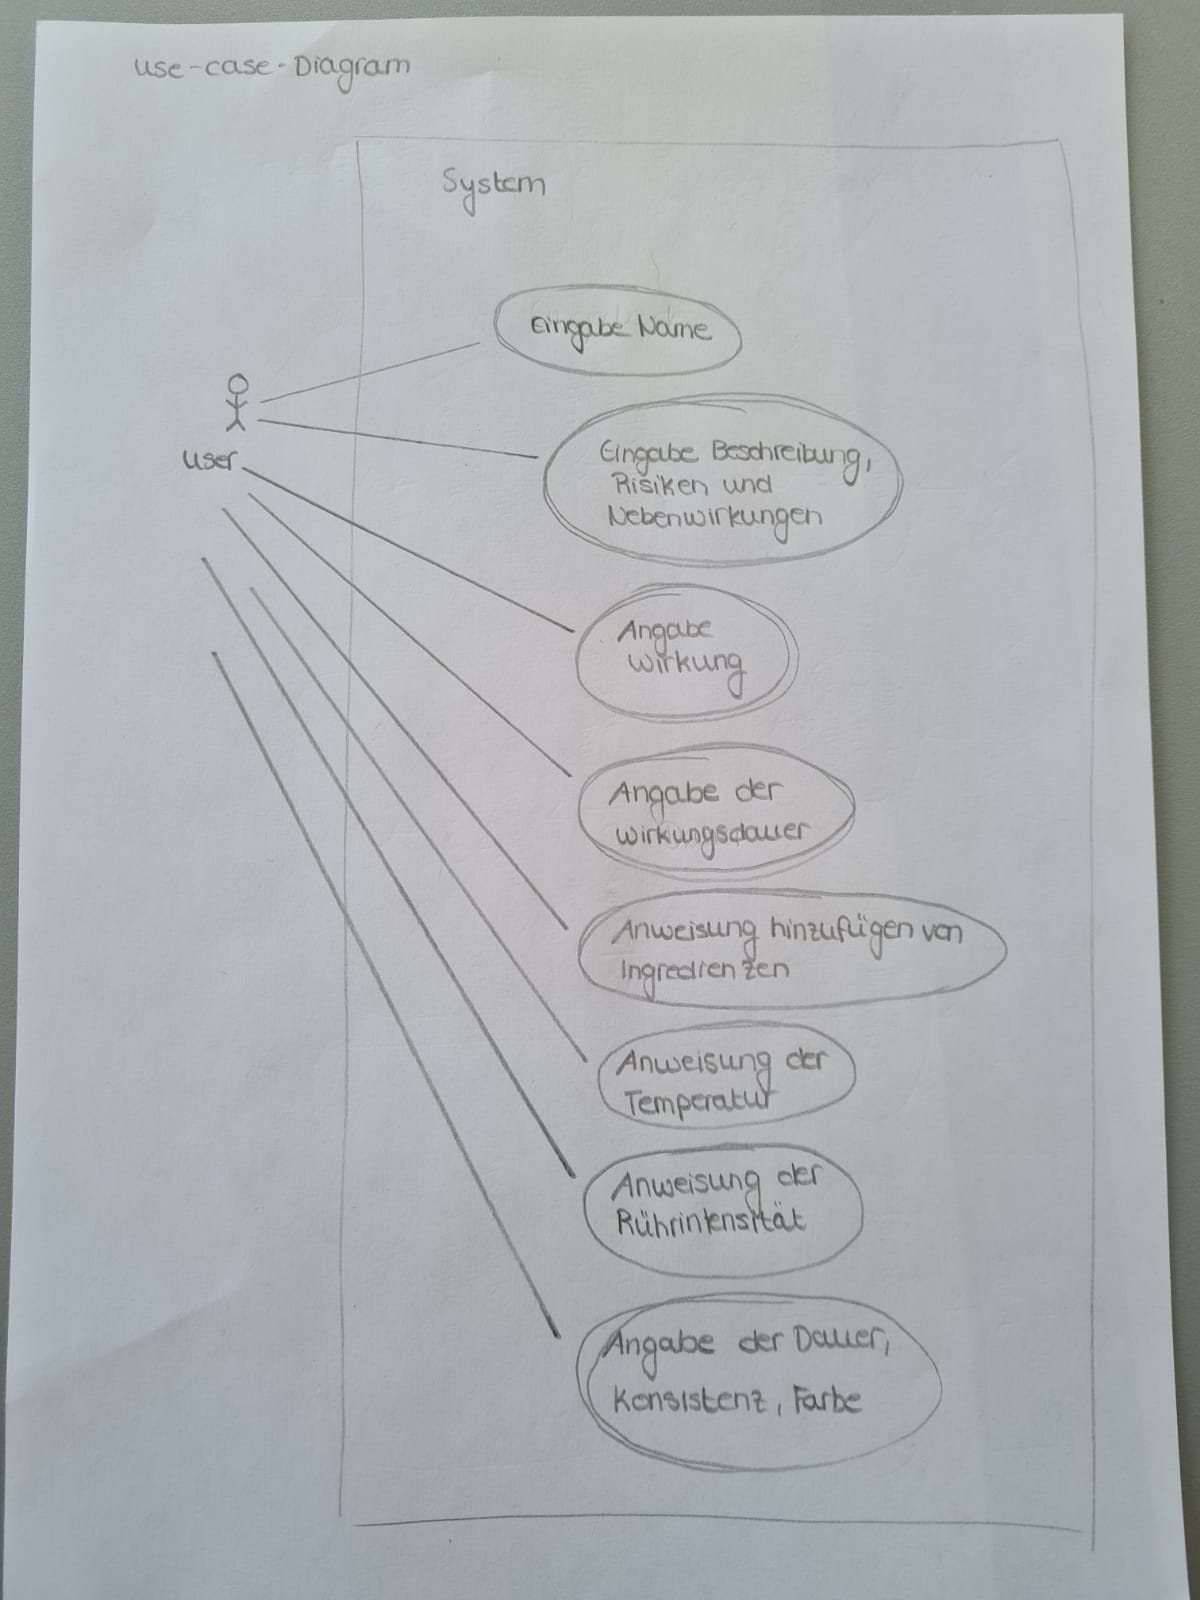 use-case-Diagram
System
Eingabe Name
user
Eingabe Beschreibung,
Risiken und
Nebenwirkungen
Angabe
Wirkung
Angabe der
Wirkungsdauer
Anweisung hinzufügen von
Ingredienzen
Anweisung der
Temperatur
Anweisung der
Rührintensität
Angabe der Dauer,
Konsistenz, Farbe